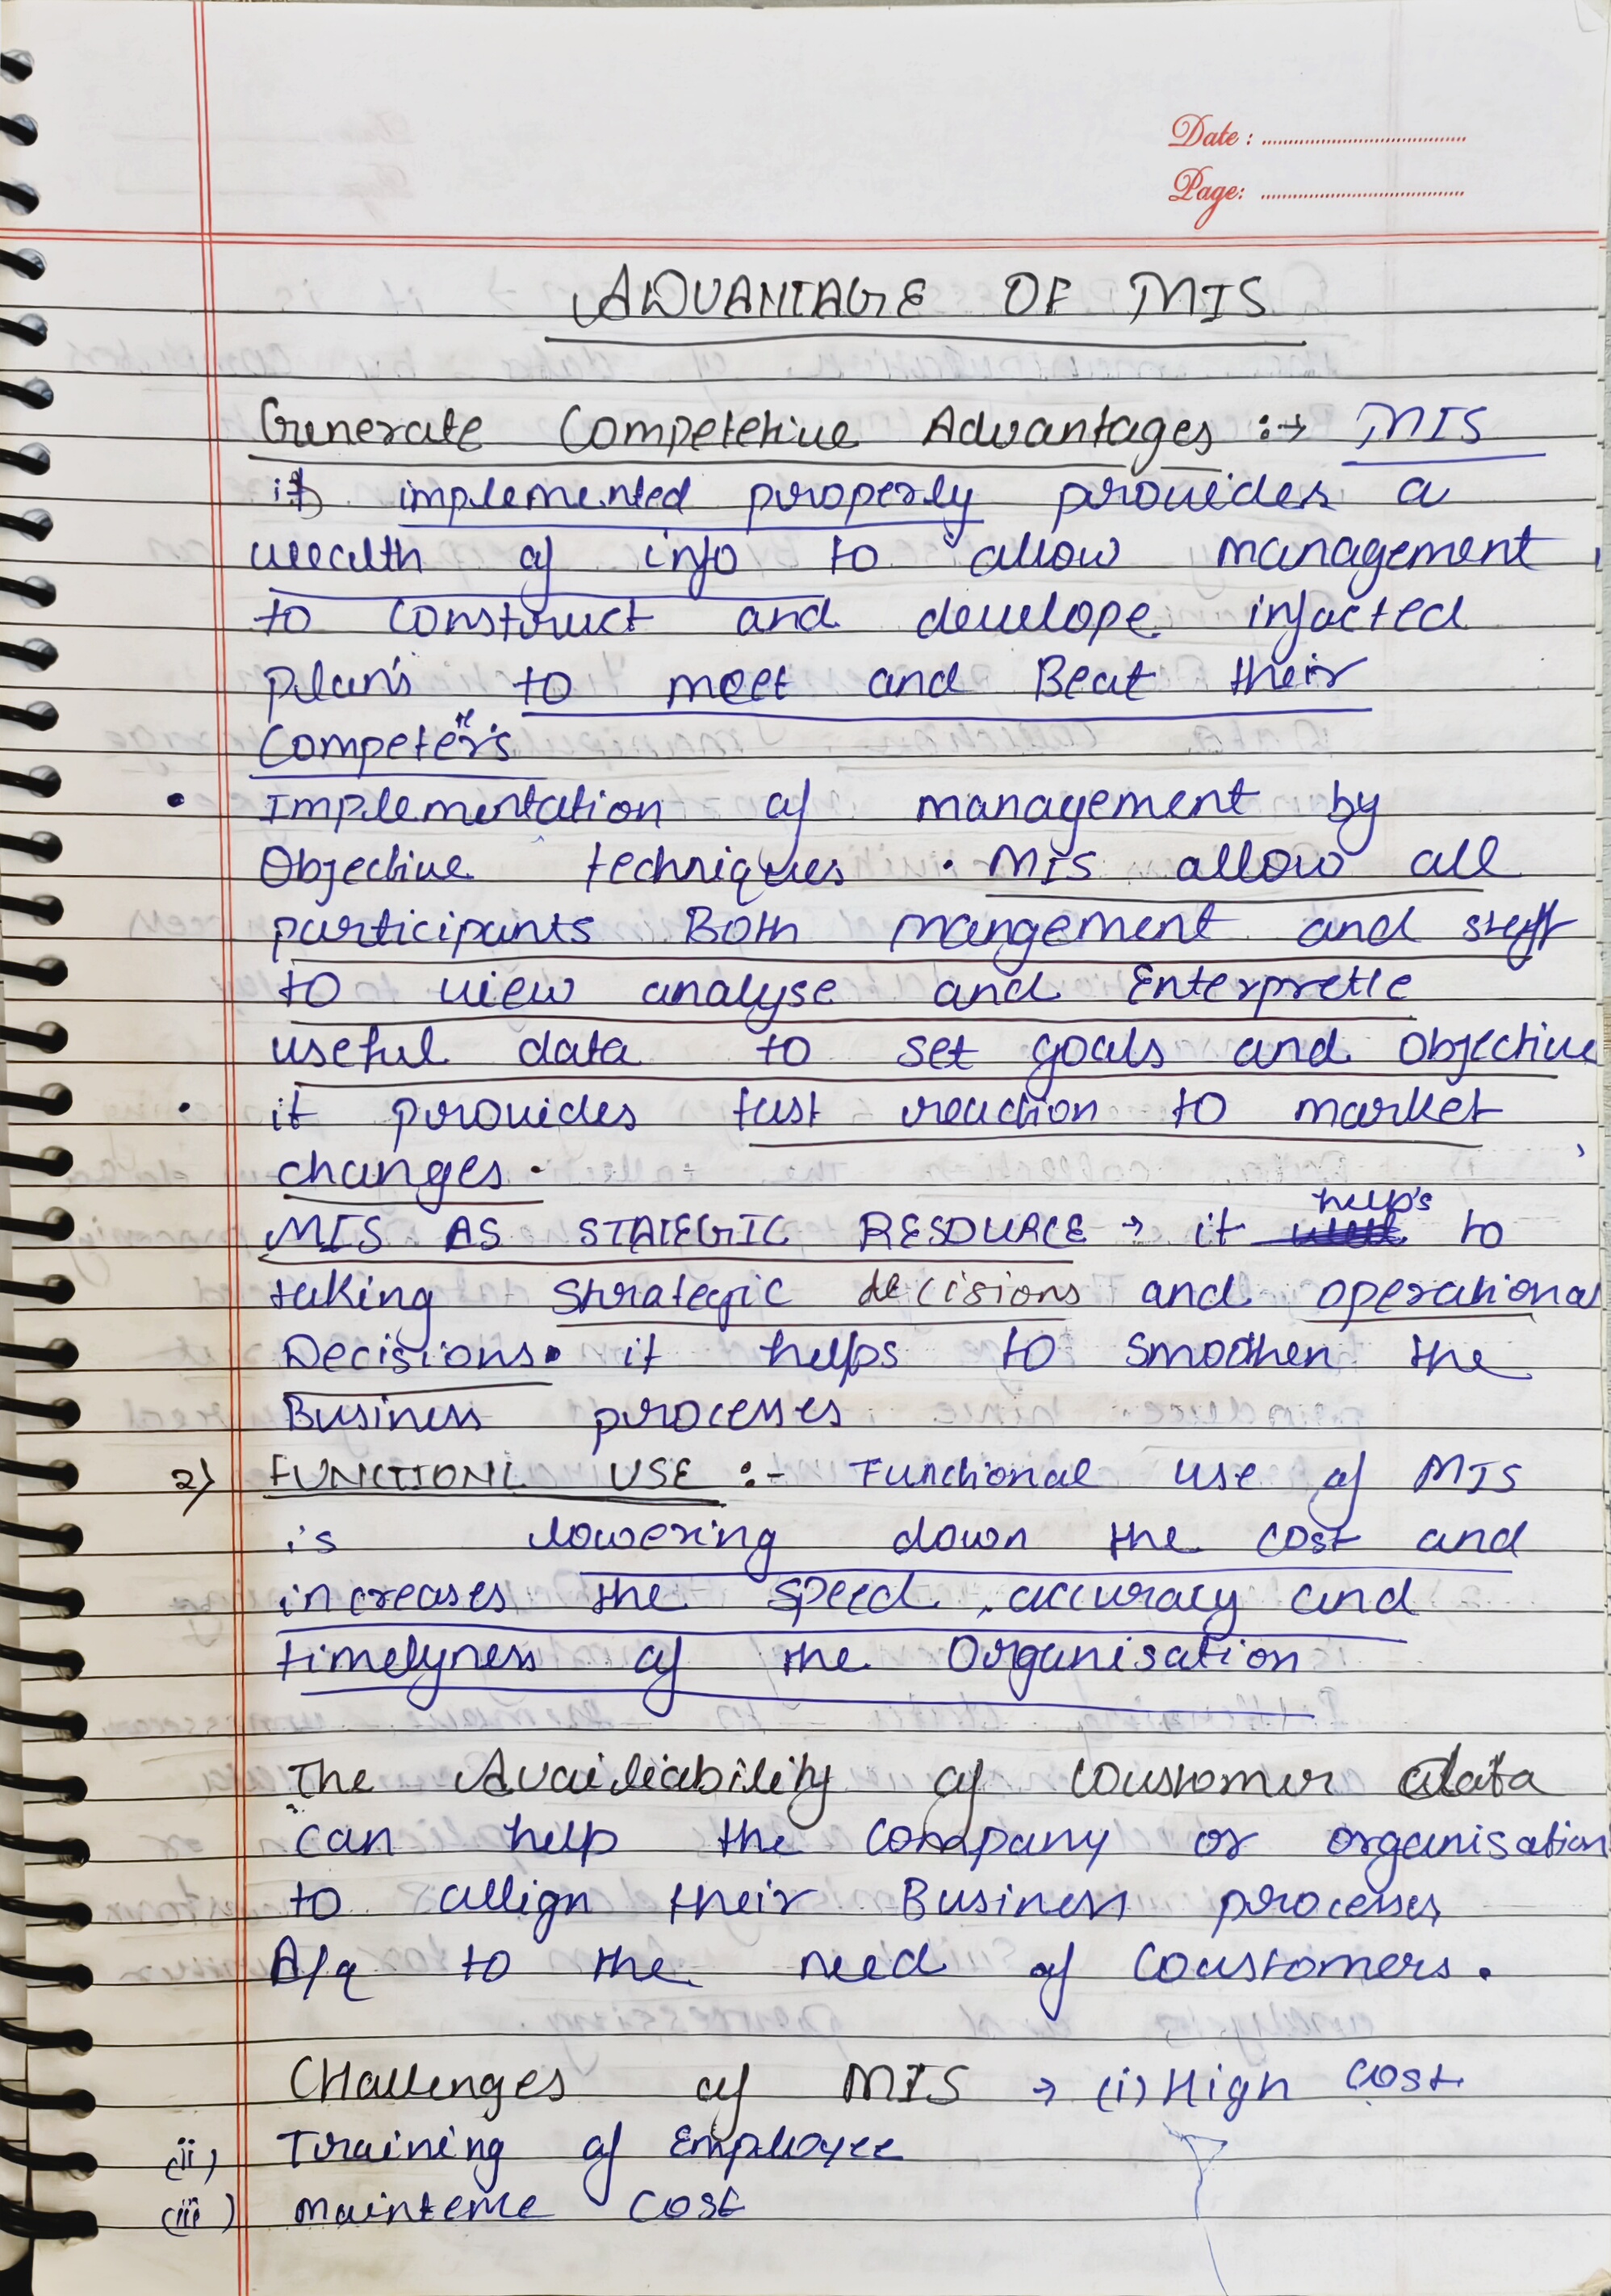 Date :
Page:
ADVANTAGE OF MIS
Generate Competetive Advantages :→ MIS
if implemented properly provides a
wealth of info to allow management
to construct and develope infacted
plan's to meet and Beat their
Competeters
• Implementation of management by
Objective techniques . MIS allow all
participants Both mangement and staff
to view analyse and Enterprete
useful data to set goals and objective
• it provides fast reaction to market
changes .
MIS AS STATEGIC RESOURCE → it help's to
taking strategic decisions and operational
Decisions. it helps to smoothen the
Business processes
2) FUNCTIONL USE :- Functional use of MIS
is lowering down the cost and
increases the speed, accuracy and
timelyness of the Organisation
The Availiability of coustomer data
can help the company or organisation
to allign their Business processes
A/q to the need of coustomers.
CHallenges of MIS → (i) High cost
(ii) Training of Employee
(iii) mainteme cost